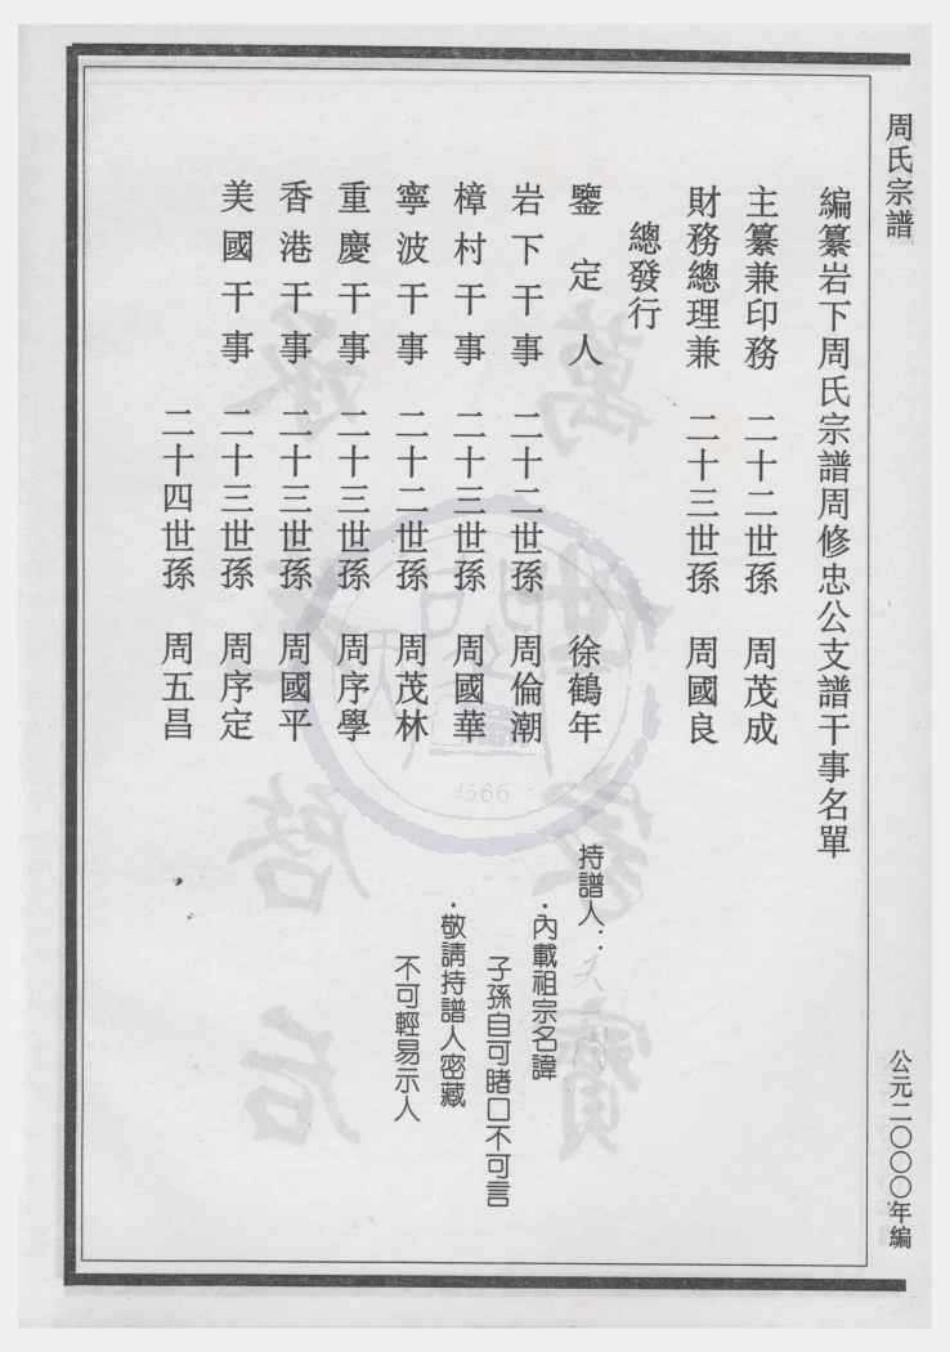 周氏宗譜
公元二〇〇〇年編
編纂岩下周氏宗譜周修忠公支譜干事名單
主纂兼印務 二十二世孫 周茂成
財務總理兼 二十三世孫 周國良
總發行
鑒定人 徐鶴年
岩下干事 二十二世孫 周倫潮
樟村干事 二十三世孫 周國華
寧波干事 二十二世孫 周茂林
重慶干事 二十三世孫 周序學
香港干事 二十三世孫 周國平
美國干事 二十三世孫 周序定
二十四世孫 周五昌
持譜人：
·內載祖宗名諱
子孫自可睹口不可言
·敬請持譜人密藏
不可輕易示人